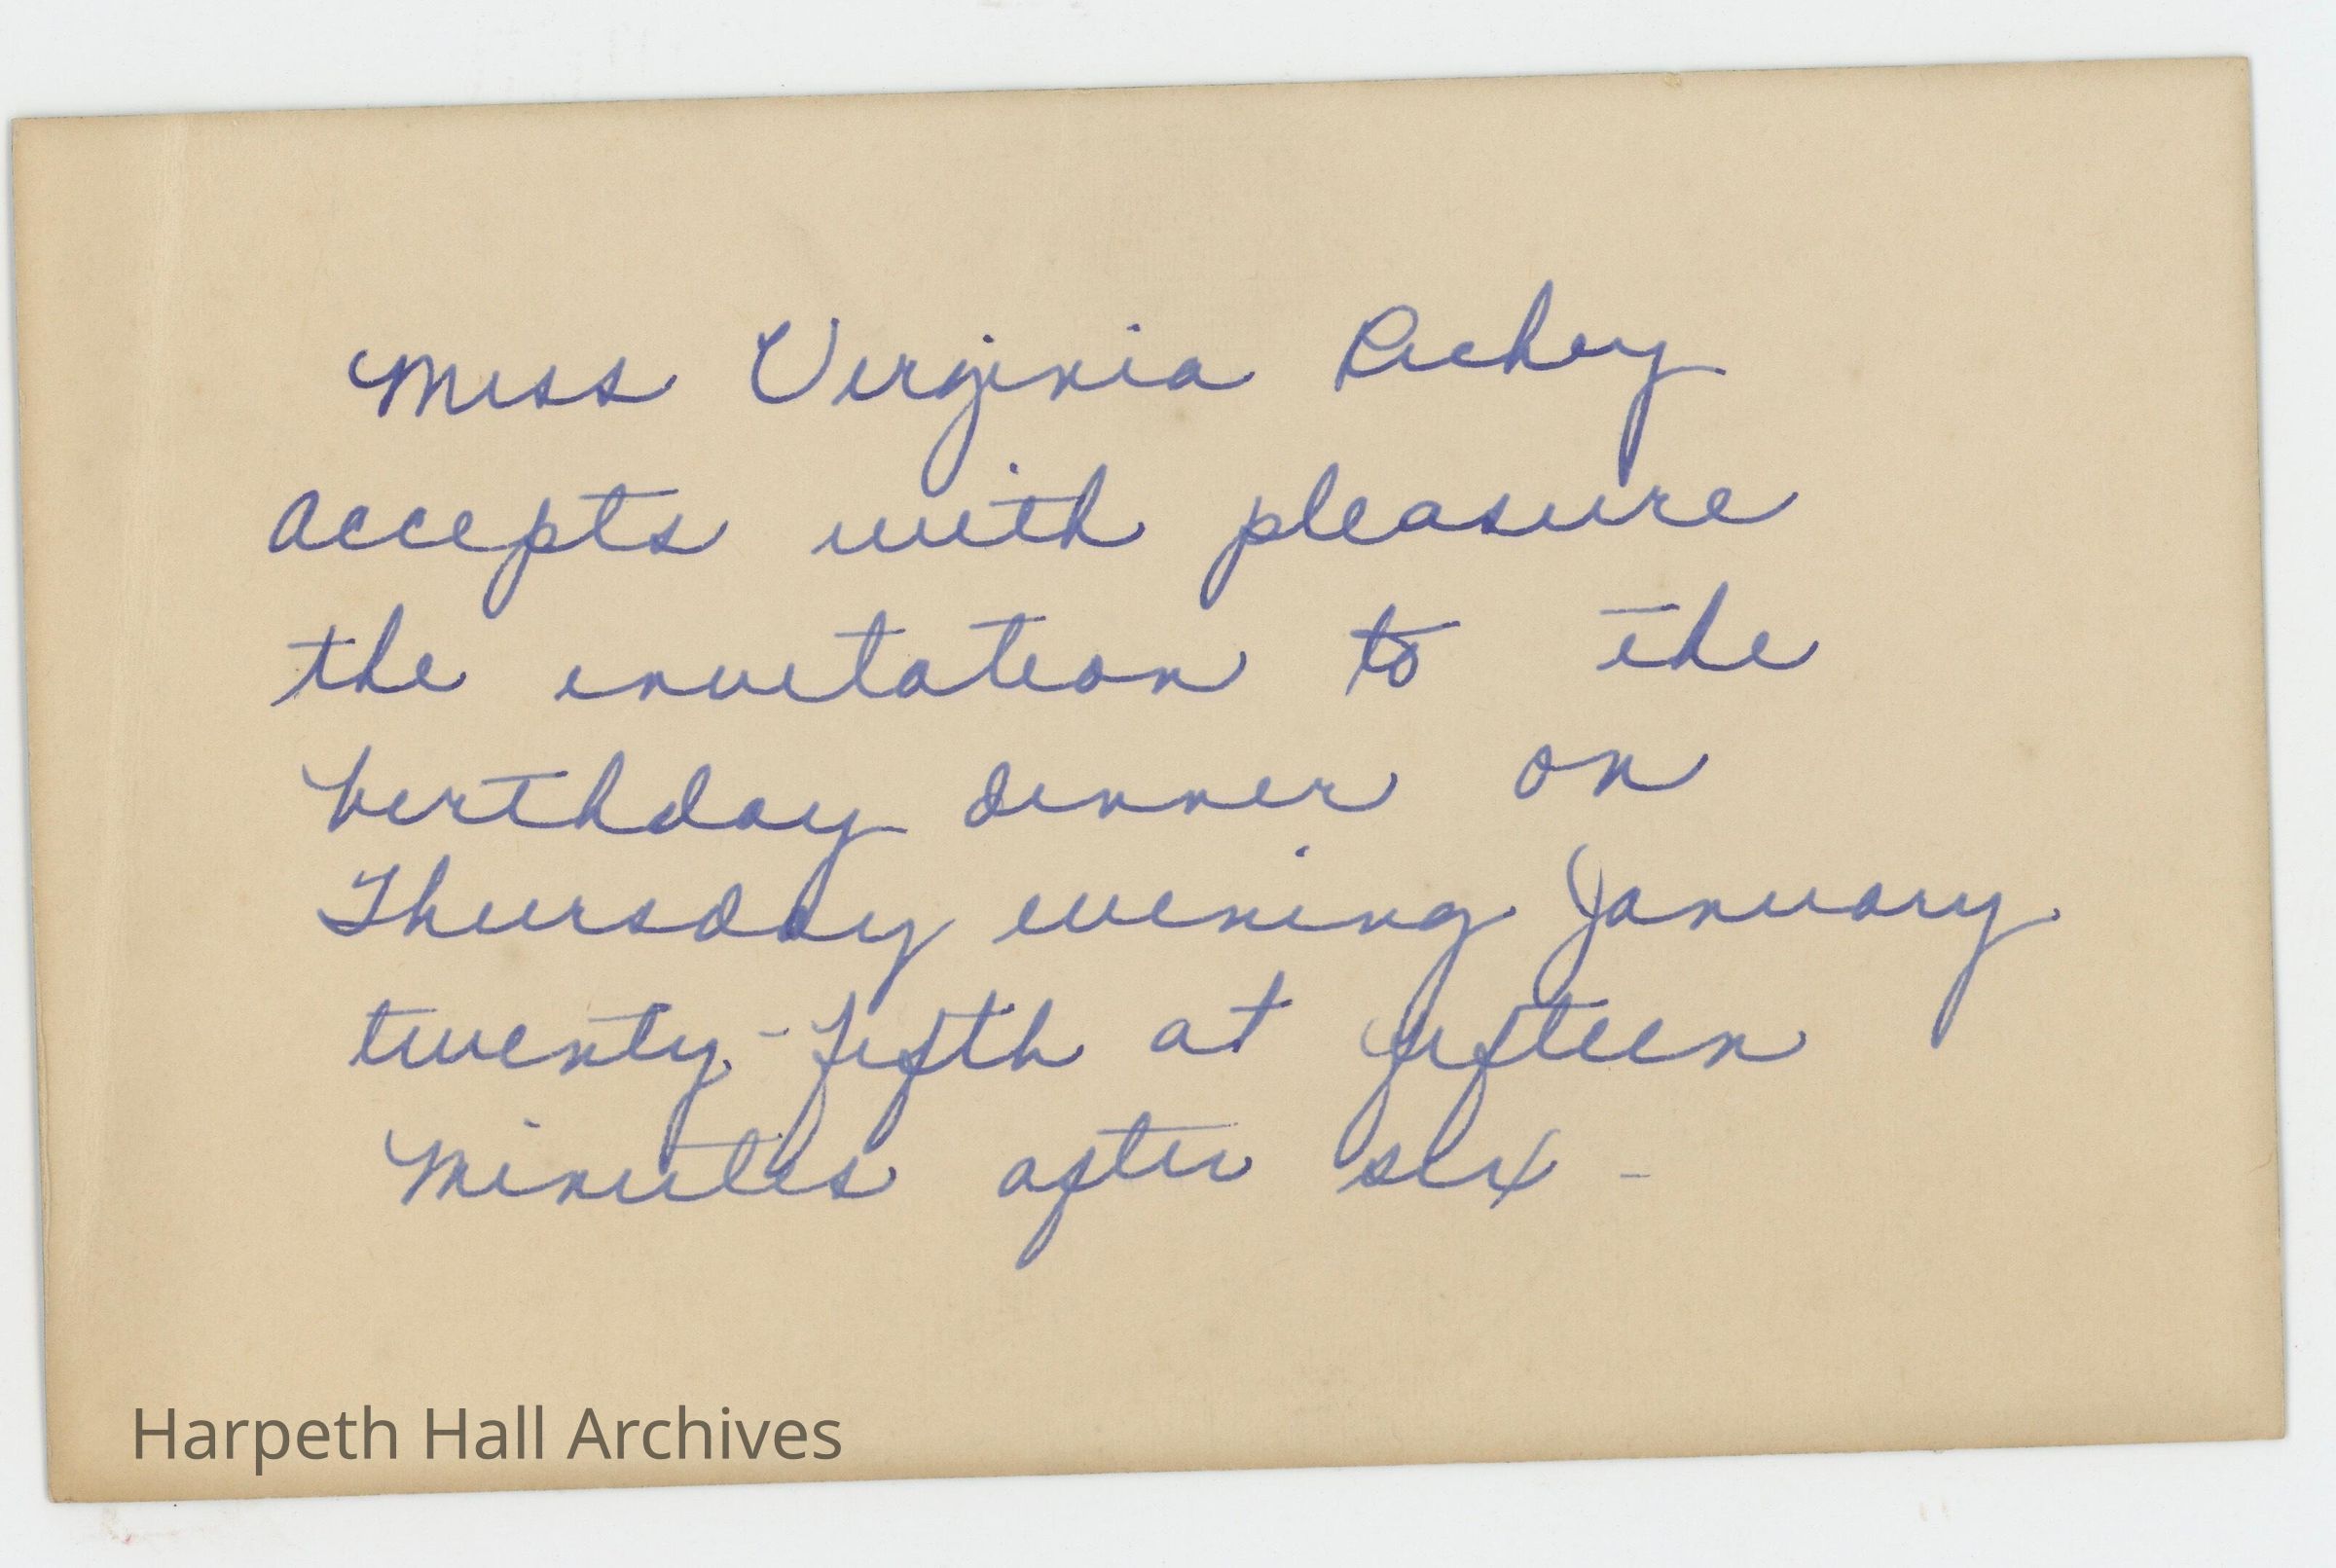 Miss Virginia Richey
accepts with pleasure
the invitation to the
birthday dinner on
Thursday evening January
twenty-fifth at fifteen
minutes after six -
Harpeth Hall Archives